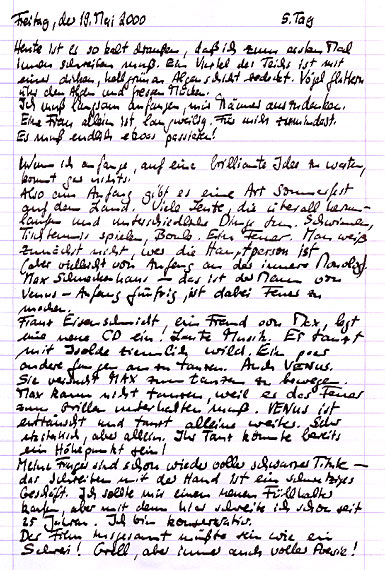 Freitag, der 19. Mai 2000 5. Tag
Heute ist es so kalt draußen, daß ich zum ersten Mal
innen schreiben muß. Ein Viertel des Teichs ist mit
einer dicken, hellgrünen Algenschicht bedeckt. Vögel flattern
über den Algen und fressen Mücken.
Ich muß langsam anfangen, mir Männer auszudenken.
Eine Frau allein ist langweilig. Für mich zumindest.
Es muß endlich etwas passieren!
Wenn ich anfange, auf eine brilliante Idee zu warten,
kommt gar nichts.
Also am Anfang gibt es eine Art Sommerfest
auf dem Land. Viele Leute, die überall herum-
laufen und unterschiedliche Dinge tun. Schwimmen,
Tischtennis spielen, Boule. Ein Feuer. Man weiß
zunächst nicht, wer die Hauptperson ist
(oder vielleicht von Anfang an das innere Monolog).
Max Schneckenhaus – das ist der Mann von
Venus – Anfang fünfzig, ist dabei Feuer zu
machen.
Franz Eisenschmidt, ein Freund von Max, legt
eine neue CD ein. Laute Musik. Er tanzt
mit Isolde ziemlich wild. Ein paar
andere fangen an zu tanzen. Auch VENUS.
Sie versucht MAX zum tanzen zu bewegen.
Max kann nicht tanzen, weil er das Feuer
zum Grillen unterhalten muß. VENUS ist
enttäuscht und tanzt alleine weiter. Sehr
, aber allein. Ihr Tanz könnte bereits
ein Höhepunkt sein!
Meine Finger sind schon wieder voller schwarzer Tinte –
das Schreiben mit der Hand ist ein schmutziges
Geschäft. Ich sollte mir einen neuen Füllhalter
kaufen, aber mit dem hier schreibe ich schon seit
25 Jahren. Ich bin konservativ.
Der Film insgesamt müßte sein wie ein
Schrei! Grell, aber immer auch voller Poesie!